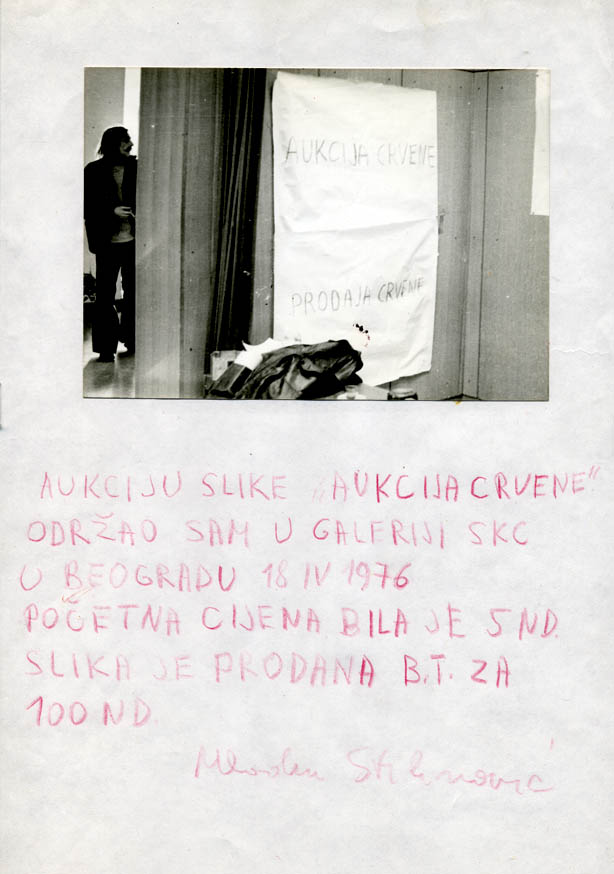 AUKCIJA CRVENE
PRODAJA CRVENE
AUKCIJU SLIKE „AUKCIJA CRVENE"
ODRŽAO SAM U GALERIJI SKC
U BEOGRADU 18 IV 1976
POČETNA CIJENA BILA JE 5 ND.
SLIKA JE PRODANA B.T. ZA
100 ND.
Mladen Stilinović